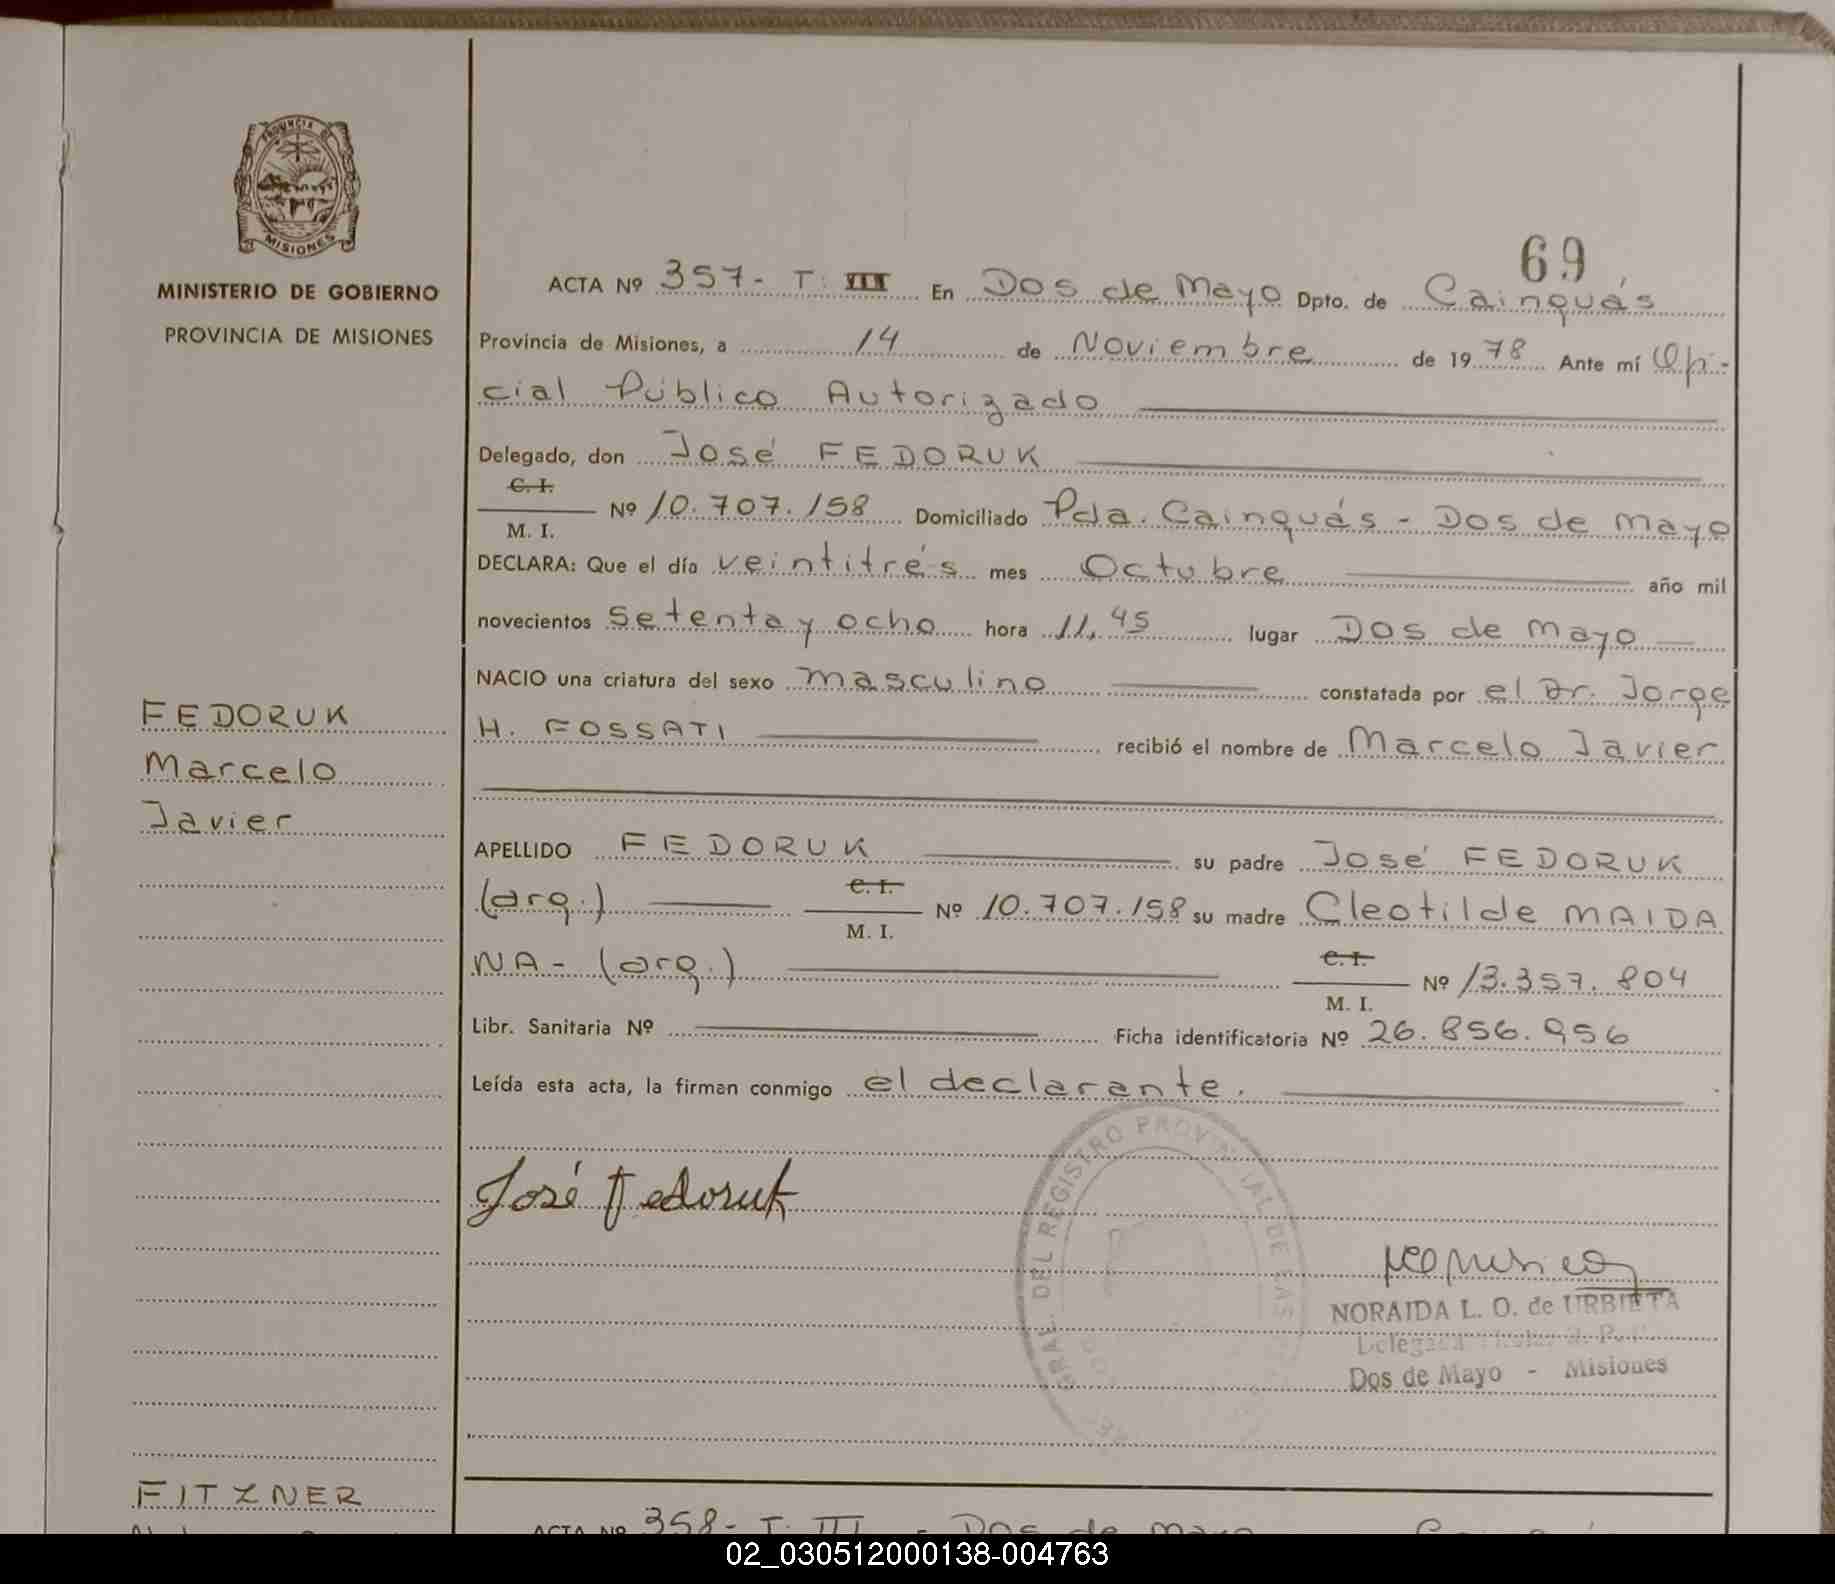 PROVINCIA DE
MISIONES
MINISTERIO DE GOBIERNO
PROVINCIA DE MISIONES
69
ACTA Nº 357- T: III En Dos de Mayo Dpto. de Cainguás
Provincia de Misiones, a 14 de Noviembre de 1978 Ante mí Ofi-
cial Público Autorizado
Delegado, don José FEDORUK
C. I.
M. I. Nº 10.707.158 Domiciliado Pda. Cainguás - Dos de Mayo
DECLARA: Que el día veintitrés mes Octubre año mil
novecientos setenta y ocho hora 11,45 lugar Dos de Mayo
NACIO una criatura del sexo masculino constatada por el Dr. Jorge
H. FOSSATI recibió el nombre de Marcelo Javier
FEDORUK
Marcelo
Javier
APELLIDO FEDORUK su padre José FEDORUK
(arg.) C. I.
M. I. Nº 10.707.158 su madre Cleotilde MAIDA
NA- (arg.) C. I.
M. I. Nº 13.357.804
Libr. Sanitaria Nº Ficha identificatoria Nº 26.856.956
Leída esta acta, la firman conmigo el declarante.
José Fedoruk
GRAL. DEL REGISTRO PROVINCIAL DE LAS
NORAIDA L. O. de URBIETA
Delegada
Dos de Mayo - Misiones
FITZNER
ACTA Nº 358- T. III - Dos de Mayo
02_030512000138-004763